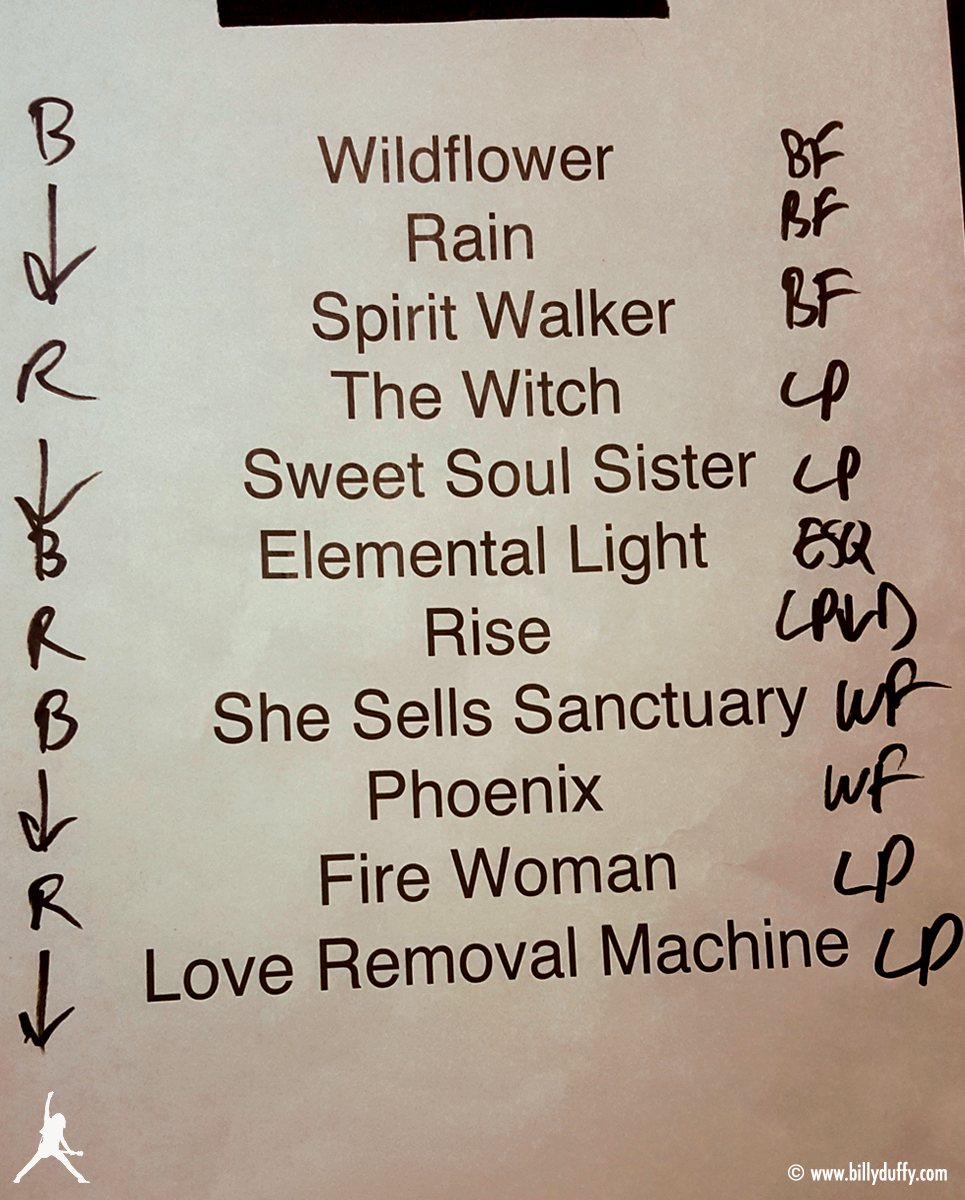 B Wildflower BF
Rain BF
Spirit Walker BF
R The Witch LP
Sweet Soul Sister LP
B Elemental Light ESQ
R Rise
B She Sells Sanctuary WF
Phoenix WF
R Fire Woman LP
Love Removal Machine LP
© www.billyduffy.com